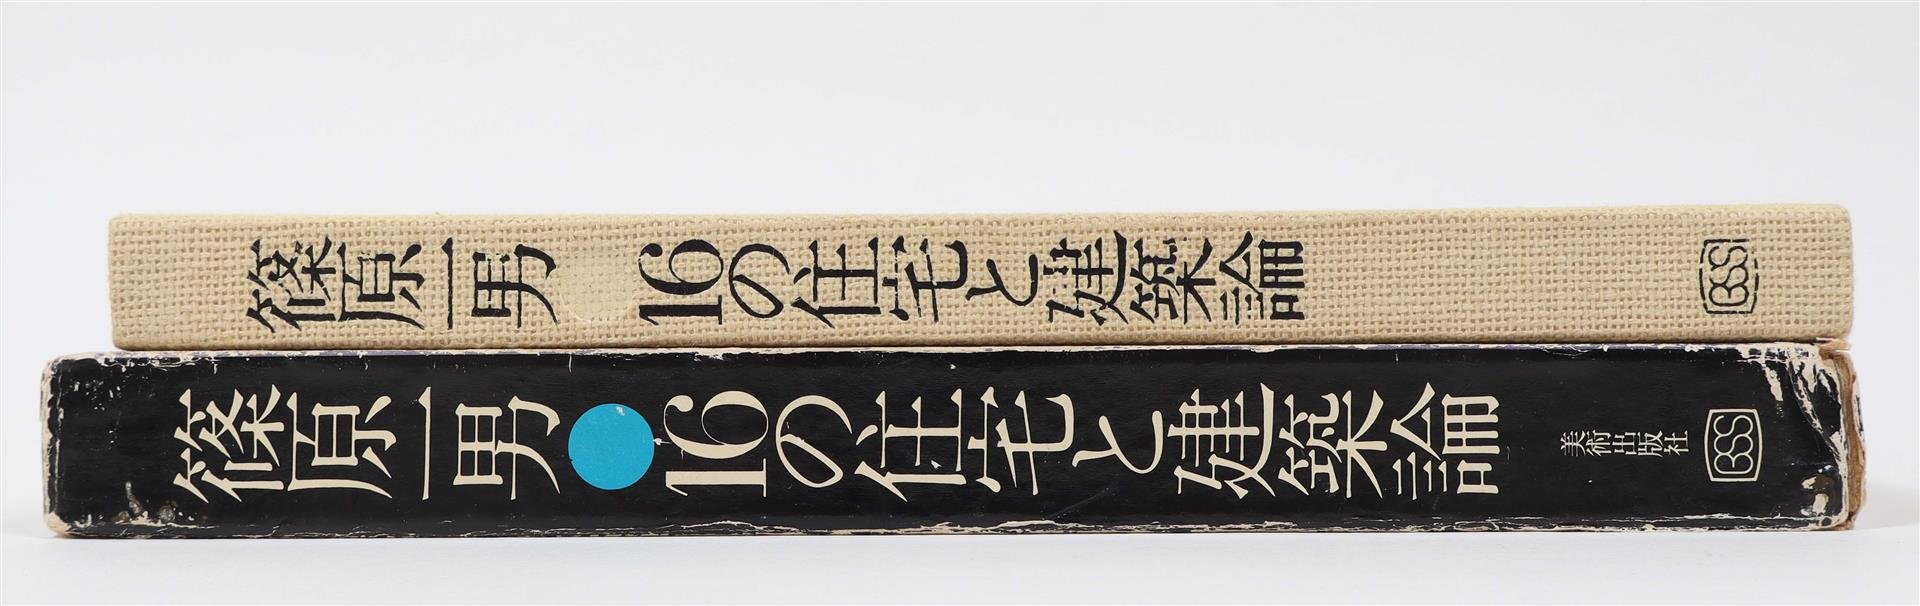 篠原一男 16の住宅と建築論 BSS
篠原一男●16の住宅と建築論 美術出版社 BSS